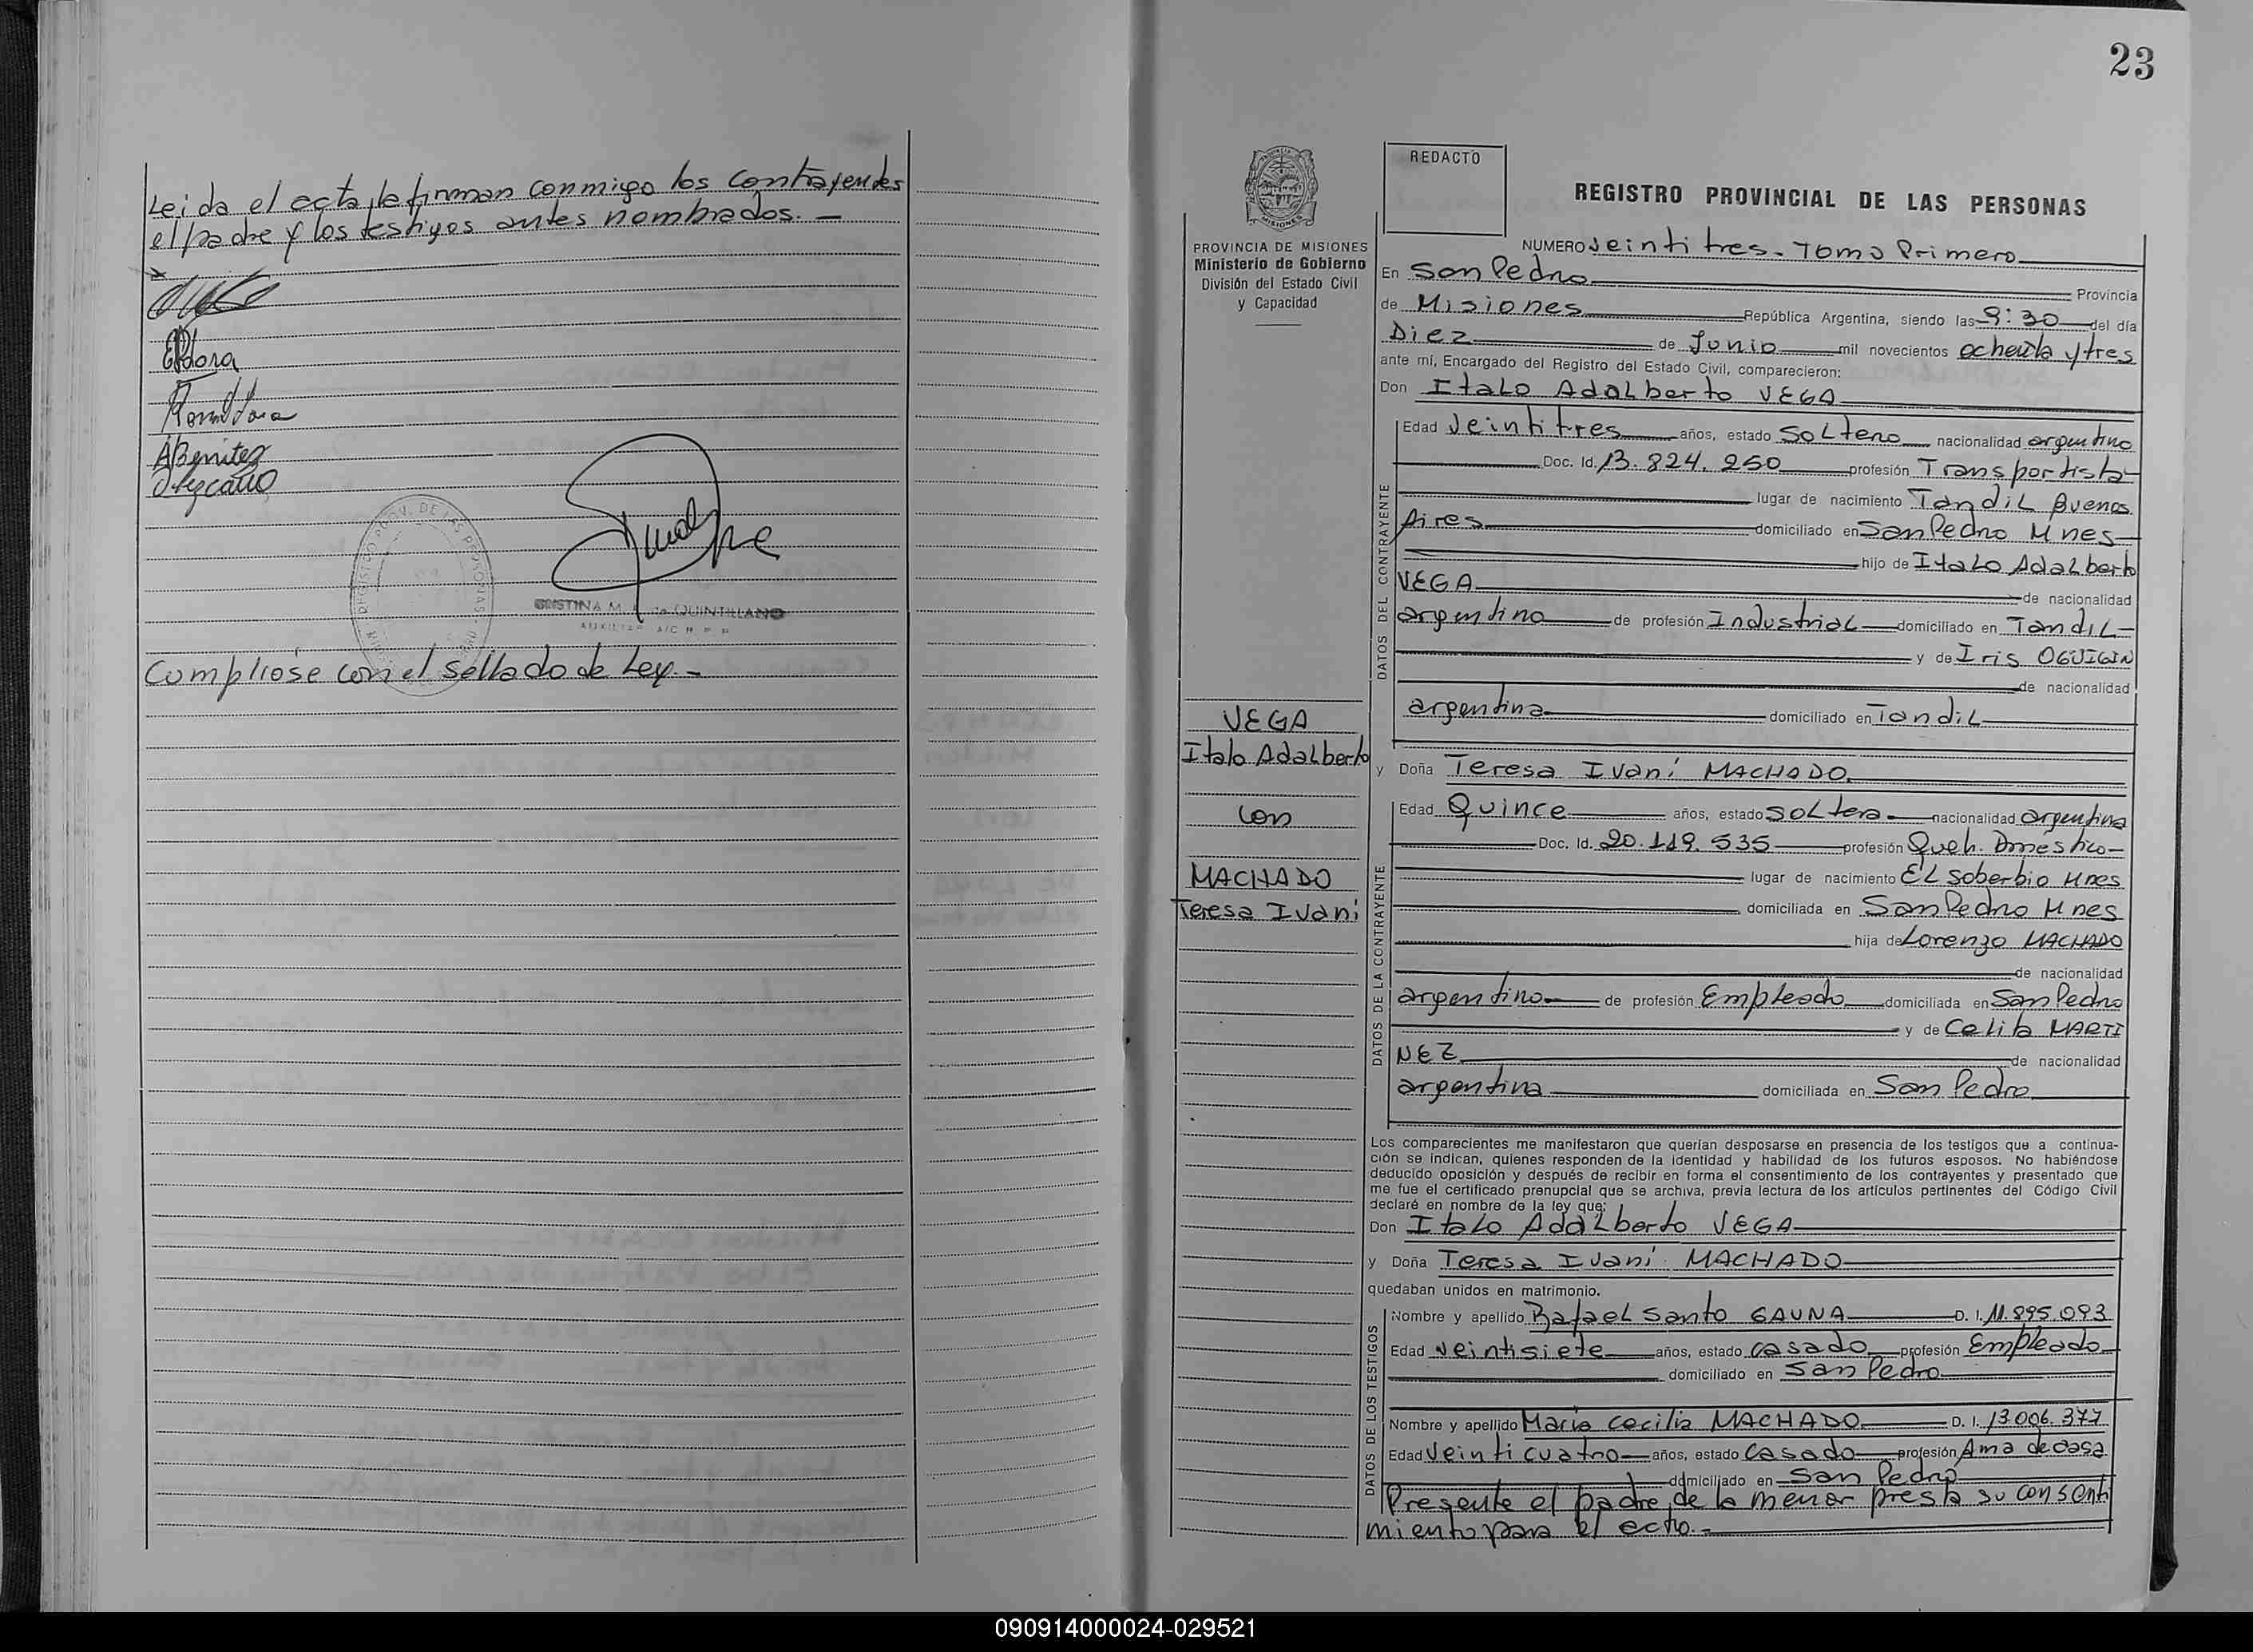 Leida el acta, la firman conmigo los contrayentes
el padre y los testigos antes nombrados. —
ABenitez
CRISTINA M. de QUINTILLANO
AUXILIAR A/C R. P. P.
Compliose con el sellado de Ley. -
23
REDACTO
REGISTRO PROVINCIAL DE LAS PERSONAS
PROVINCIA DE MISIONES
Ministerio de Gobierno
División del Estado Civil
y Capacidad
NUMERO Veinti tres. Tomo Primero
En San Pedro Provincia
de Misiones República Argentina, siendo las 9:30 del día
Diez de Junio mil novecientos ochenta y tres
ante mí, Encargado del Registro del Estado Civil, comparecieron:
Don Italo Adalberto VEGA
DATOS DEL CONTRAYENTE
Edad Veintitres años, estado Soltero nacionalidad argentino
Doc. Id. 13.824.250 profesión Transportista
lugar de nacimiento Tandil Buenos
Aires domiciliado en San Pedro Mnes
hijo de Italo Adalberto
VEGA de nacionalidad
argentino de profesión Industrial domiciliado en Tandil
y de Iris OGUIGIN
de nacionalidad
argentina domiciliado en Tandil
VEGA
Italo Adalberto
con
MACHADO
Teresa Ivani
y Doña Teresa Ivani MACHADO
DATOS DE LA CONTRAYENTE
Edad Quince años, estado Soltera nacionalidad argentina
Doc. Id. 20.119.535 profesión Queh. Domestico
lugar de nacimiento El Soberbio Mnes
domiciliada en San Pedro Mnes
hija de Lorenzo MACHADO
de nacionalidad
argentino de profesión Empleado domiciliada en San Pedro
y de Celita MARTI
NEZ de nacionalidad
argentina domiciliada en San Pedro
Los comparecientes me manifestaron que querían desposarse en presencia de los testigos que a continua-
ción se indican, quienes responden de la identidad y habilidad de los futuros esposos. No habiéndose
deducido oposición y después de recibir en forma el consentimiento de los contrayentes y presentado que
me fue el certificado prenupcial que se archiva, previa lectura de los artículos pertinentes del Código Civil
declaré en nombre de la ley que:
Don Italo Adalberto VEGA
y Doña Teresa Ivani MACHADO
quedaban unidos en matrimonio.
DATOS DE LOS TESTIGOS
Nombre y apellido Rafael Santo GAUNA D. I. 11.895.093
Edad veintisiete años, estado casado profesión Empleado
domiciliado en San Pedro
Nombre y apellido Maria Cecilia MACHADO D. I. 13.006.377
Edad Veinti cuatro años, estado Casado profesión Ama de casa
domiciliado en San Pedro
Presente el padre de la menor presta su consenti
miento para el acto. -
090914000024-029521